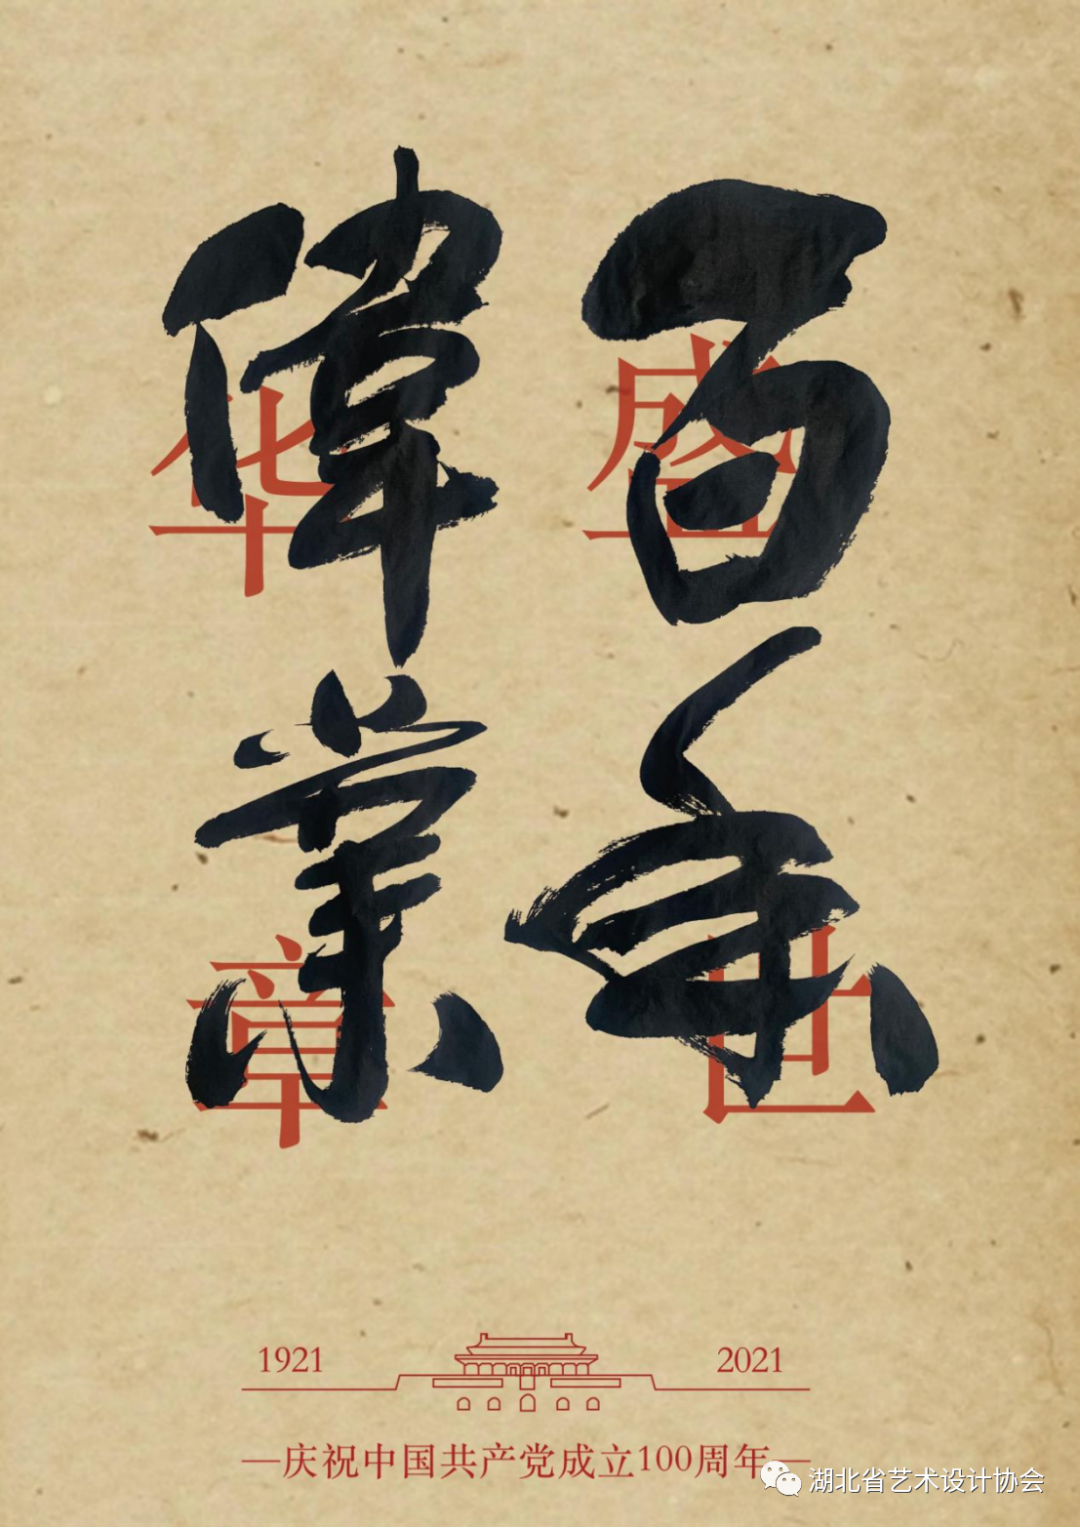 百年
偉業
盛世
华章
1921
2021
—庆祝中国共产党成立100周年—
湖北省艺术设计协会